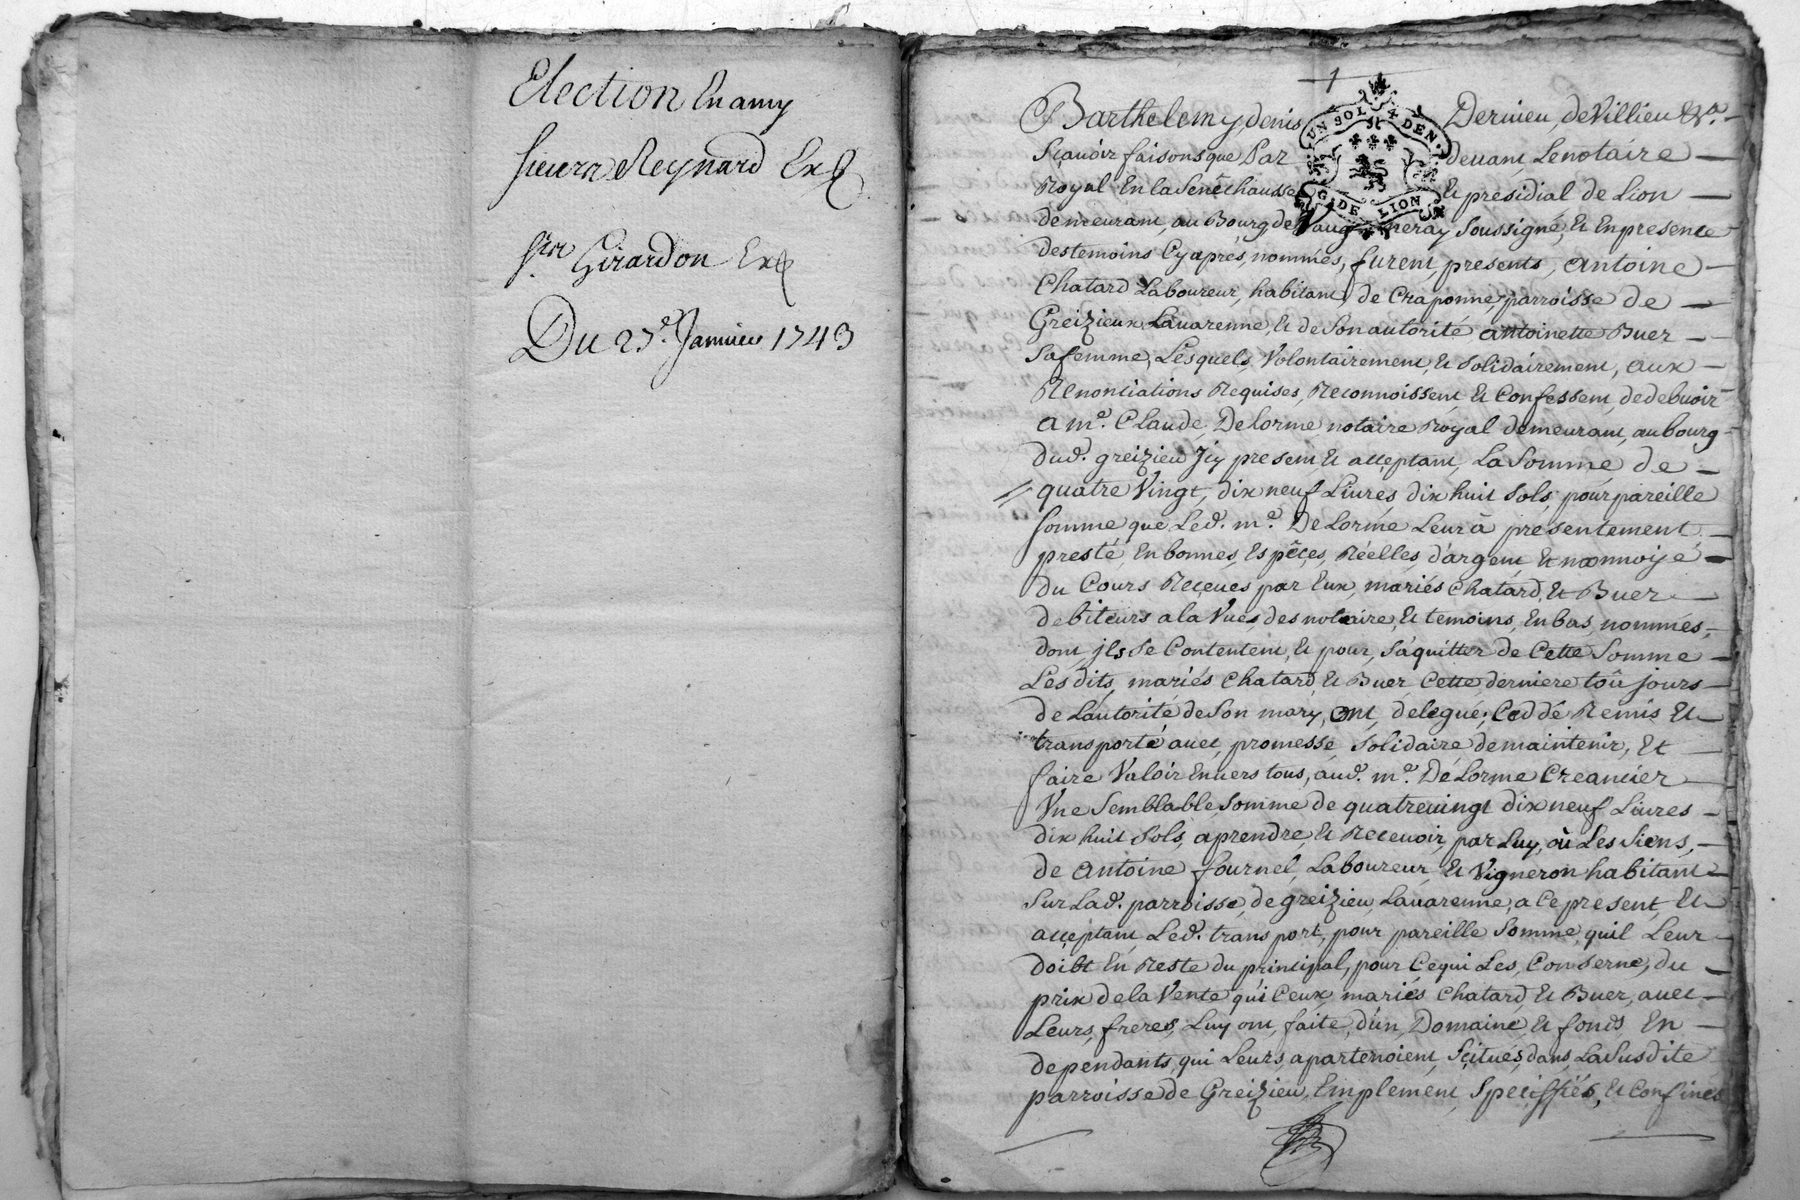 Election En amy
sieurs Reynard Exp
Sr Girardon Exp
Du 27e. Janvier 1743
1
UN SOL 4 DEN.
G. DE LION
Barthelemy, denis Dervieu, de Villieu &a.
Sçavoir faisons que Par devant Le notaire
Royal En la Senéchaussé Et presidial de Lion
demeurant au Bourg de Vaugneray Soussigné, Et En presence
des temoins Cy aprés, nommés, furent presents, Antoine
Chatard Laboureur, habitant de Craponne parroisse de
Greizieux Lavarenne, Et de Son autorité antoinette Buer
Sa femme, Lesquels Volontairement, Et Solidairement, aux
Renonciations Requises, Reconnoissent Et Confessent, de debvoir
a me. Claude Delorme notaire Royal demeurant, au bourg
dud. greizieu Jcy present Et acceptant, La Somme de
quatre Vingt, dix neuf Livres dix huit Sols, pour pareille
Somme que Led. me. De Lorme Leur à presentement
presté En bonnes, Espêces, Réelles d'argent Et monnoÿe
du Cours Reçeues par Eux, mariés Chatard, Et Buer
debiteurs a la Vue, des notaire, Et temoins, En bas, nommés,
dont jls Se Contentent, Et pour, S'aquitter de Cette Somme
Les dits, mariés Chatard Et Buer, Cette derniere toûjours
de Lautorité de Son mary, ont, delegué, Ceddé Remis Et
transporté avec promesse, Solidaire de maintenir, Et
faire Valoir Envers tous, aud. me. De Lorme Creancier
Vne Semblable Somme de quatrevingt dix neuf Livres
dix huit Sols, a prendre, Et Recevoir, par Luy, où Les Siens,
de Antoine fournel, Laboureur, Et Vigneron habitant
Sur Lad. parroisse, de greizieu, Lavarenne, a Ce present, Et
acceptant Led. transport, pour pareille Somme, quil Leur
doibt En Reste du principal, pour Ce qui Les, Conserne, du
prix de la Vente qui Ceux, mariés Chatard, Et Buer, avec
Leurs, freres, Luy ont, faite, d'ún, Domaine, Et fonds En
dependants, qui Leurs, apartenoient, Scitués, dans, La Susdite
parroisse de Greizieu, Emplement, Speciffiés, Et Confinés